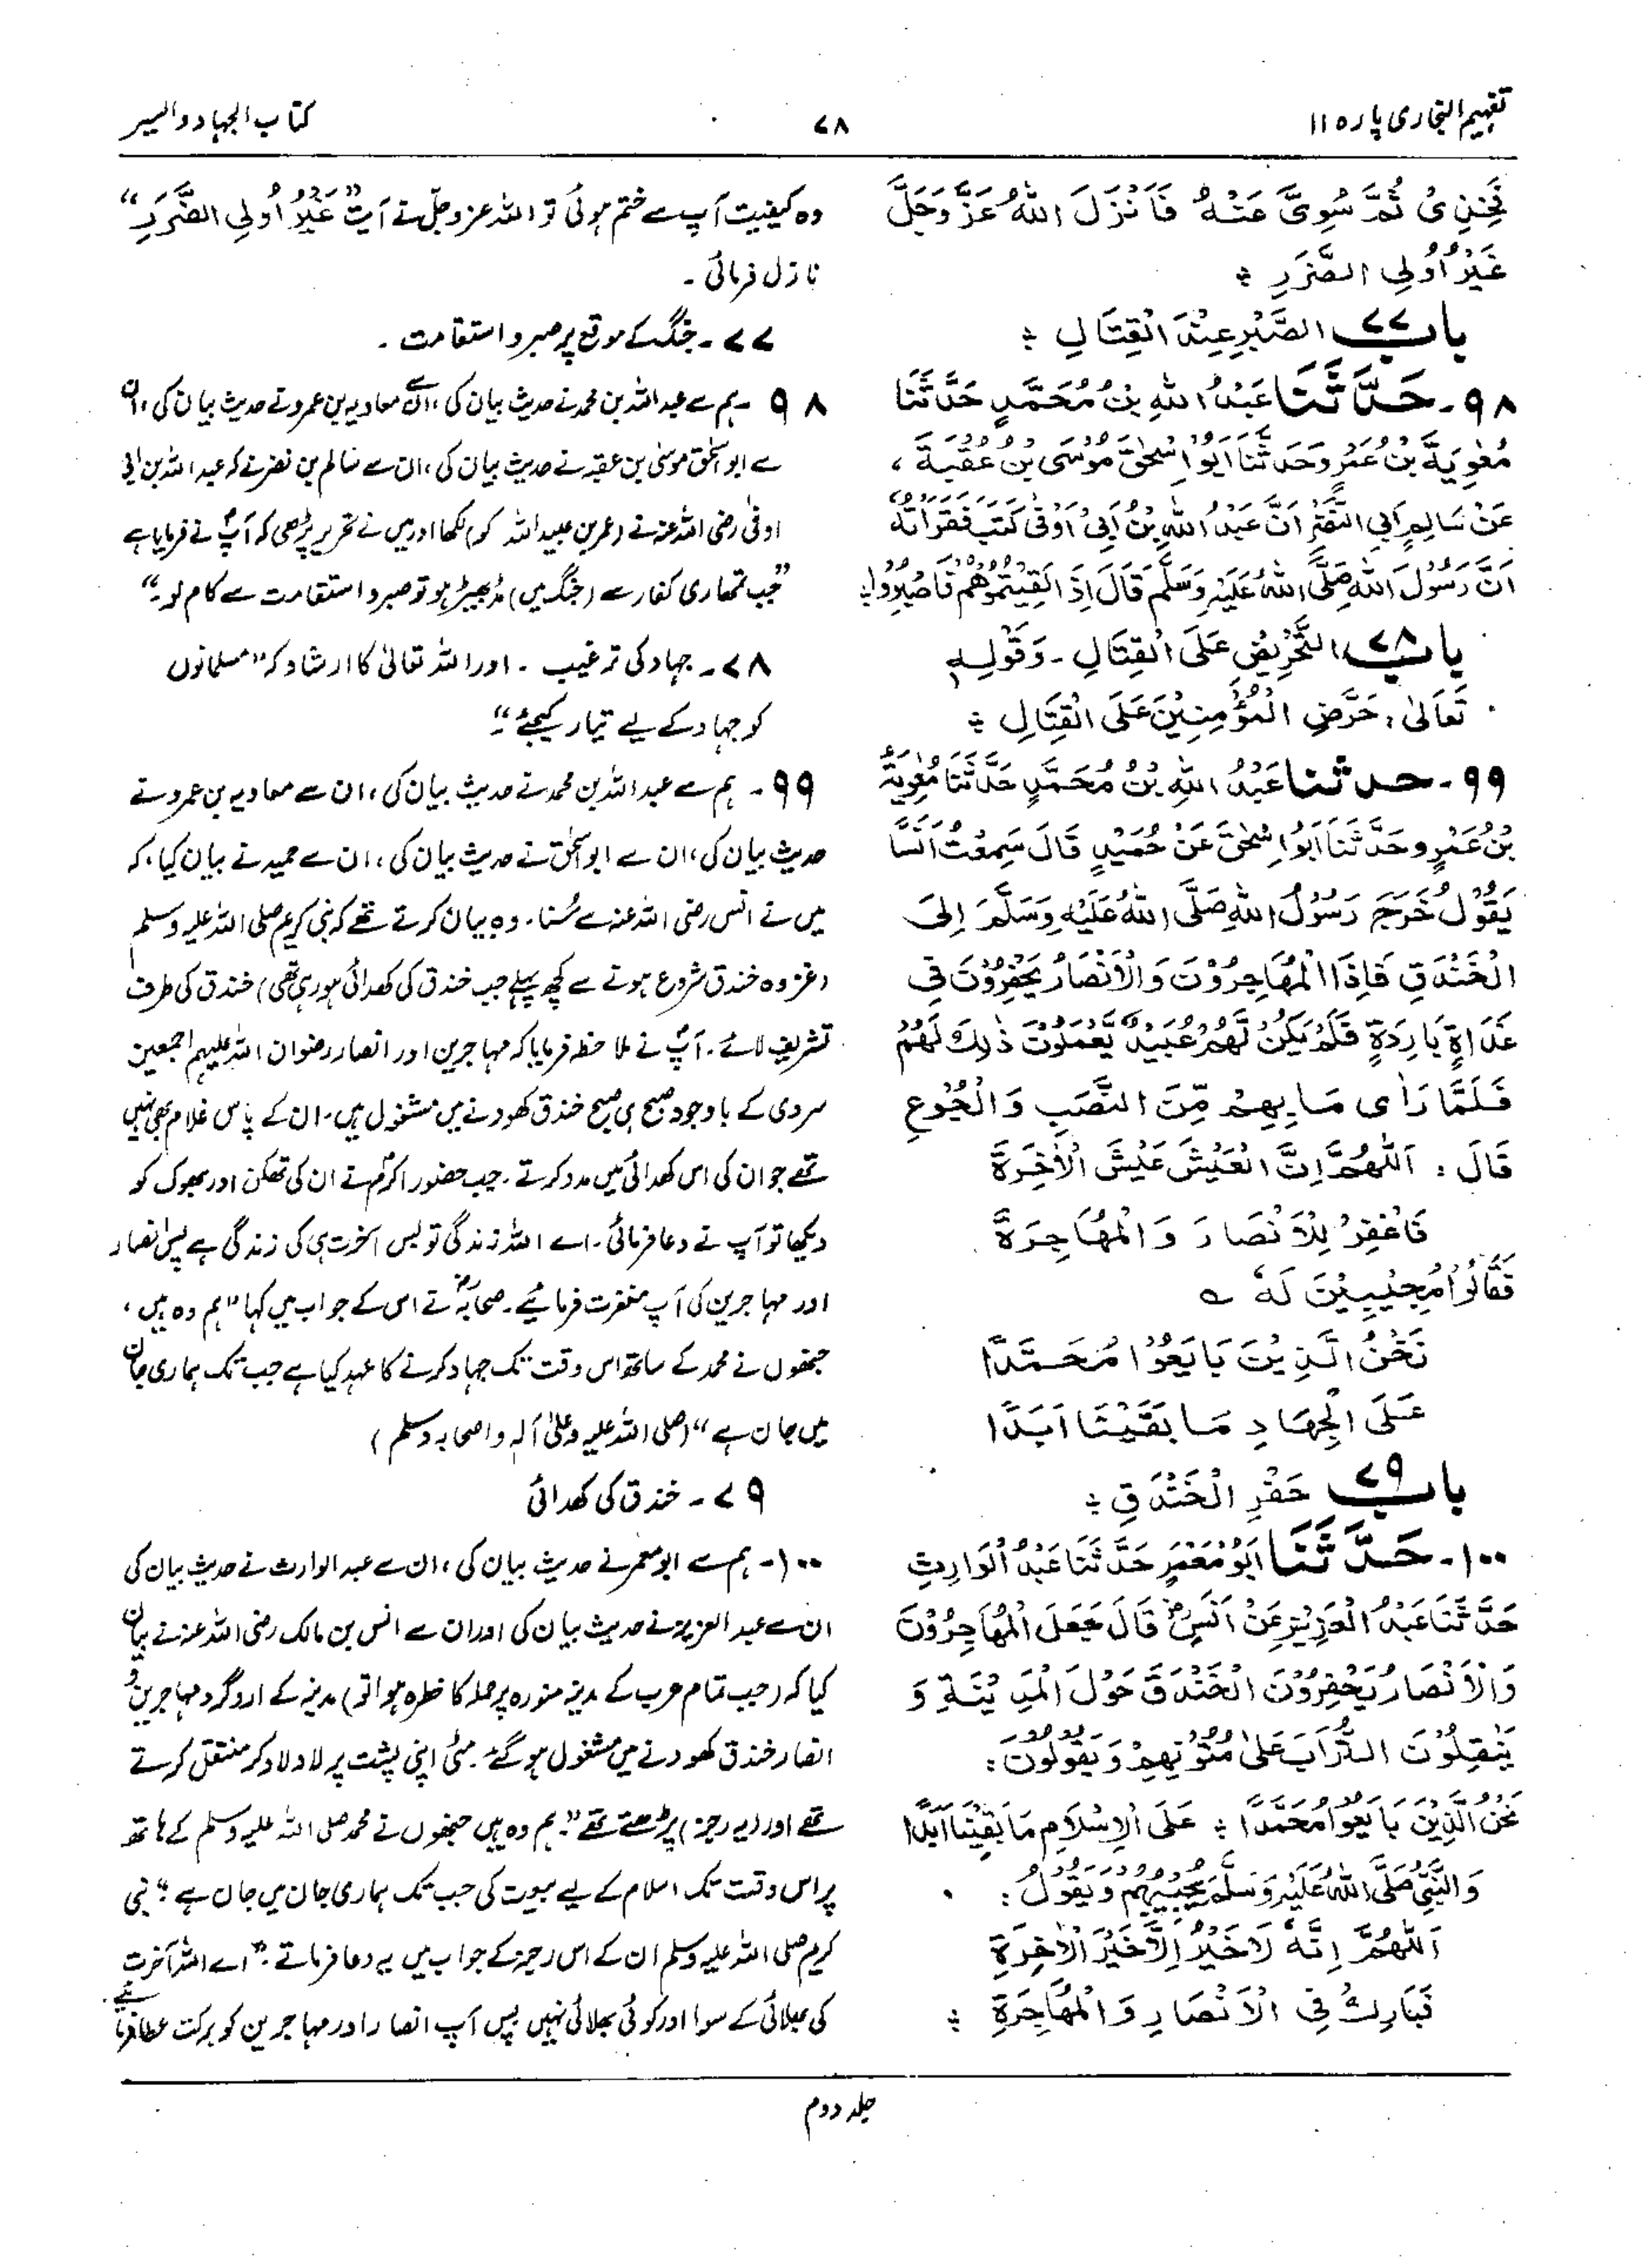 تفہیم البخاری پارہ ۱۱
۷۸
کتاب الجہاد والسیر
فَخِذِیْ ثُمَّ سُرِّیَ عَنْهُ فَاَنْزَلَ اللهُ عَزَّ وَجَلَّ
غَيْرُ اُولِی الضَّرَرِ ؞
باب ۷۷ الصَّبْرِ عِنْدَ الْقِتَالِ ؞
۹۸۔ حَدَّثَنَا عَبْدُ اللهِ بْنُ مُحَمَّدٍ حَدَّثَنَا
مُعٰوِيَةُ بْنُ عَمْرٍو حَدَّثَنَا اَبُوْ اِسْحٰقَ مُوْسَى بْنُ عُقْبَةَ ،
عَنْ سَالِمٍ اَبِی النَّضْرِ اَنَّ عَبْدَ اللهِ بْنَ اَبِیْ اَوْفٰى كَتَبَ فَقَرَاْتُهٗ
اَنَّ رَسُوْلَ اللهِ صَلَّى اللهُ عَلَيْهِ وَسَلَّمَ قَالَ اِذَ الَقِيْتُمُوْهُمْ فَاصْبِرُوْا ؞
باب ۷۸ التَّحْرِيْضِ عَلَى الْقِتَالِ ۔ وَقَوْلِهٖ
تَعَالٰى : حَرِّضِ الْمُؤْمِنِيْنَ عَلَى الْقِتَالِ ؞
۹۹۔ حدثنا عَبْدُ اللهِ بْنُ مُحَمَّدٍ حَدَّثَنَا مُعٰوِيَةُ
بْنُ عَمْرٍو حَدَّثَنَا اَبُوْ اِسْحٰقَ عَنْ حُمَيْدٍ قَالَ سَمِعْتُ اَنَسًا
يَقُوْلُ خَرَجَ رَسُوْلُ اللهِ صَلَّى اللهُ عَلَيْهِ وَسَلَّمَ اِلَى
الْخَنْدَقِ فَاِذَا الْمُهَاجِرُوْنَ وَالْاَنْصَارُ يَحْفِرُوْنَ فِی
غَدَاةٍ بَارِدَةٍ فَلَمْ يَكُنْ لَّهُمْ عَبِيْدٌ يَّعْمَلُوْنَ ذٰلِكَ لَهُمْ
فَلَمَّا رَاٰى مَا بِهِمْ مِّنَ النَّصَبِ وَالْجُوْعِ
قَالَ : اَللّٰهُمَّ اِنَّ الْعَيْشَ عَيْشُ الْاٰخِرَةِ
فَاغْفِرْ لِلْاَنْصَارَ وَالْمُهَاجِرَةِ
فَقَالُوْا مُجِيْبِيْنَ لَهٗ ؎
نَحْنُ الَّذِيْنَ بَايَعُوْا مُحَمَّدًا
عَلَى الْجِهَادِ مَا بَقِيْنَا اَبَدًا
باب ۷۹ حَفْرِ الْخَنْدَقِ ؞
۱۰۰۔ حَدَّثَنَا اَبُوْ مَعْمَرٍ حَدَّثَنَا عَبْدُ الْوَارِثِ
حَدَّثَنَا عَبْدُ الْعَزِيْزِ عَنْ اَنَسٍ رض قَالَ جَعَلَ الْمُهَاجِرُوْنَ
وَالْاَنْصَارُ يَحْفِرُوْنَ الْخَنْدَقَ حَوْلَ الْمَدِيْنَةِ وَ
يَنْقِلُوْنَ التُّرَابَ عَلٰى مُتُوْنِهِمْ وَيَقُوْلُوْنَ :
نَحْنُ الَّذِيْنَ بَايَعُوْا مُحَمَّدًا ؞ عَلَى الْاِسْلَامِ مَا بَقِيْنَا اَبَدًا
وَالنَّبِیُّ صَلَّى اللهُ عَلَيْهِ وَسَلَّمَ يُجِيْبُهُمْ وَيَقُوْلُ :
اَللّٰهُمَّ اِنَّهٗ لَا خَيْرَ اِلَّا خَيْرُ الْاٰخِرَةِ
فَبَارِكْ فِی الْاَنْصَارِ وَالْمُهَاجِرَةِ ؞
وہ کیفیت آپ سے ختم ہوئی تو اللہ عزوجل نے آیت ”غَيْرُ اُولِی الضَّرَرِ“
نازل فرمائی ۔
۷۷ ۔ جنگ کے موقع پر صبر و استقامت ۔
۹۸ ۔ ہم سے عبد اللہ بن محمد نے حدیث بیان کی ، ان سے معاویہ بن عمرو نے حدیث بیان کی ، ان
سے ابو اسحٰق موسیٰ بن عقبہ نے حدیث بیان کی ، ان سے سالم بن نضر نے کہ عبد اللہ بن ابی
اوفیٰ رضی اللہ عنہ نے (عمر بن عبید اللہ کو) لکھا اور میں نے تحریر پڑھی کہ آپ نے فرمایا ہے
”جب تمھاری کفار سے (جنگ میں) مڈبھیڑ ہو تو صبر و استقامت سے کام لو ۔“
۷۸ ۔ جہاد کی ترغیب ۔ اور اللہ تعالیٰ کا ارشاد کہ ”مسلمانوں
کو جہاد کے لیے تیار کیجئے ۔“
۹۹ ۔ ہم سے عبد اللہ بن محمد نے حدیث بیان کی ، ان سے معاویہ بن عمرو نے
حدیث بیان کی ، ان سے ابو اسحٰق نے حدیث بیان کی ، ان سے حمید نے بیان کیا ، کہ
میں نے انس رضی اللہ عنہ سے سُنا ۔ وہ بیان کرتے تھے کہ نبی کریم صلی اللہ علیہ وسلم
(غزوہ خندق شروع ہونے سے کچھ پہلے جب خندق کی کھدائی ہو رہی تھی) خندق کی طرف
تشریف لائے ۔ آپ نے ملاحظہ فرمایا کہ مہاجرین اور انصار رضوان اللہ علیہم اجمعین
سردی کے باوجود صبح ہی صبح خندق کھودنے میں مشغول ہیں ۔ ان کے پاس غلام بھی نہیں
تھے جو ان کی اس کھدائی میں مدد کرتے ۔ جب حضور اکرم نے ان کی تھکن اور بھوک کو
دیکھا تو آپ نے دعا فرمائی ۔ اے اللہ زندگی تو بس آخرت ہی کی زندگی ہے پس انصار
اور مہاجرین کی آپ مغفرت فرمائیے ۔ صحابہ رض نے اس کے جواب میں کہا ”ہم وہ ہیں ،
جنھوں نے محمد کے ساتھ اس وقت تک جہاد کرنے کا عہد کیا ہے جب تک ہماری جان
میں جان ہے“ (صلی اللہ علیہ وعلیٰ آلہ واصحابہ وسلم)
۷۹ ۔ خندق کی کھدائی
۱۰۰ ۔ ہم سے ابو معمر نے حدیث بیان کی ، ان سے عبد الوارث نے حدیث بیان کی
ان سے عبد العزیز نے حدیث بیان کی اور ان سے انس بن مالک رضی اللہ عنہ نے بیان
کیا کہ (جب تمام عرب کے مدینہ منورہ پر حملہ کا خطرہ ہوا تو) مدینہ کے ارد گرد مہاجرین و
انصار خندق کھودنے میں مشغول ہو گئے ۔ مٹی اپنی پشت پر لاد لاد کر منتقل کرتے
تھے اور (یہ رجز) پڑھتے تھے ”ہم وہ ہیں جنھوں نے محمد صلی اللہ علیہ وسلم کے ہاتھ
پر اس وقت تک اسلام کے لیے بیعت کی جب تک ہماری جان میں جان ہے ؛“ نبی
کریم صلی اللہ علیہ وسلم ان کے اس رجز کے جواب میں یہ دعا فرماتے ؛ ”اے اللہ آخرت
کی بھلائی کے سوا اور کوئی بھلائی نہیں پس آپ انصار اور مہاجرین کو برکت عطا فرمائیے ۔
جلد دوم